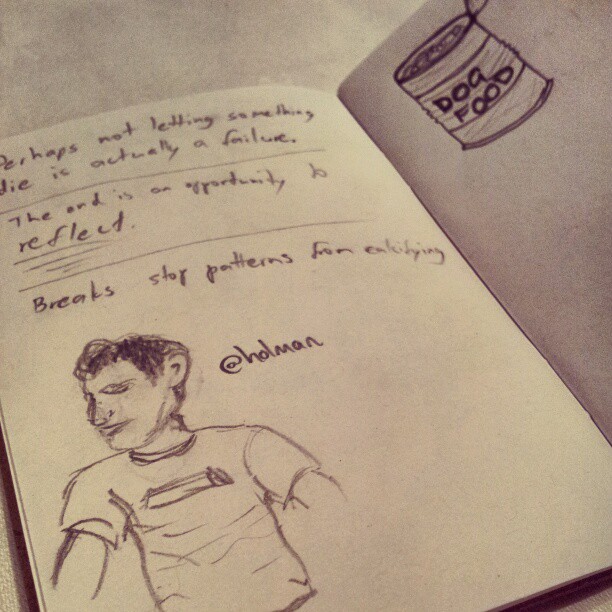 Perhaps not letting something
die is actually a failure.
The end is an opportunity to
reflect.
Breaks stop patterns from calcifying
@holman
DOG
FOOD